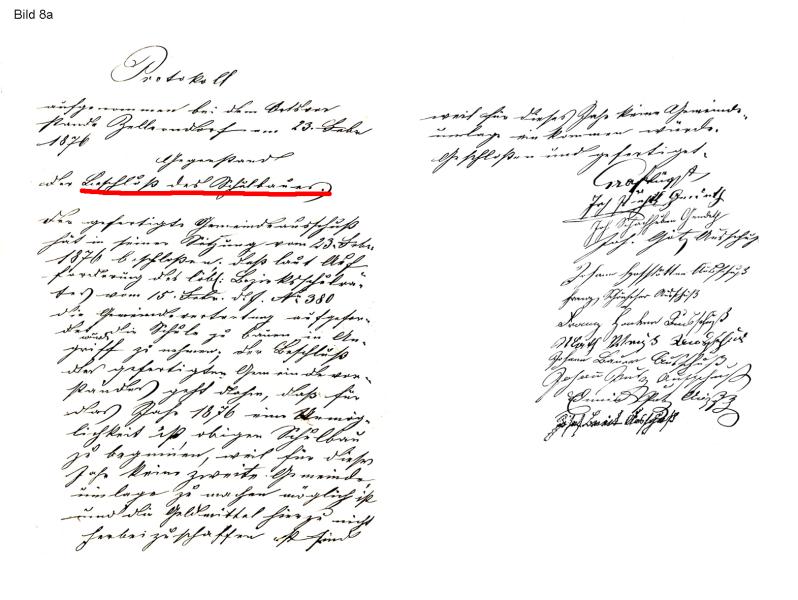 Bild 8a
Protokoll
aufgenommen bei dem Ortsvor
stande Zellerndorf am 23. Febr
1876
Gegenstand
der Beschluß des Schulbaues.
Der gefertigte Gemeindeausschuß
hat in seiner Sitzung vom 23. Febr.
1876 beschloßen, daß laut Auf
forderung des löbl: Bezirksschulra-
tes vom 15. Febr. dJ. No 380
die Gemeindevertretung aufgefor-
dert wird die Schule zu bauen in An-
griff zu nehmen. Der Beschluß
des gefertigten Gemeindevor-
standes geht dahin, daß für
das Jahr 1876 eine Unmög-
lichkeit ist obigen Schulbau
zu beginnen, weil für dieses
Jahr keine zweite Gemeinde
umlage zu machen möglich ist
und die Geldmittel hierzu nicht
herbeizuschaffen sind
weil für dieses Jahr keine Gemeinde-
umlage einkommen würde.
Geschloßen und gefertiget.
Joh
Joh. Götz Ausschuß
Johann Ausschuß
Ausschuß
Franz Ausschuß
Johann Bauer Ausschuß
Johann Ausschuß
Josef Ausschuß